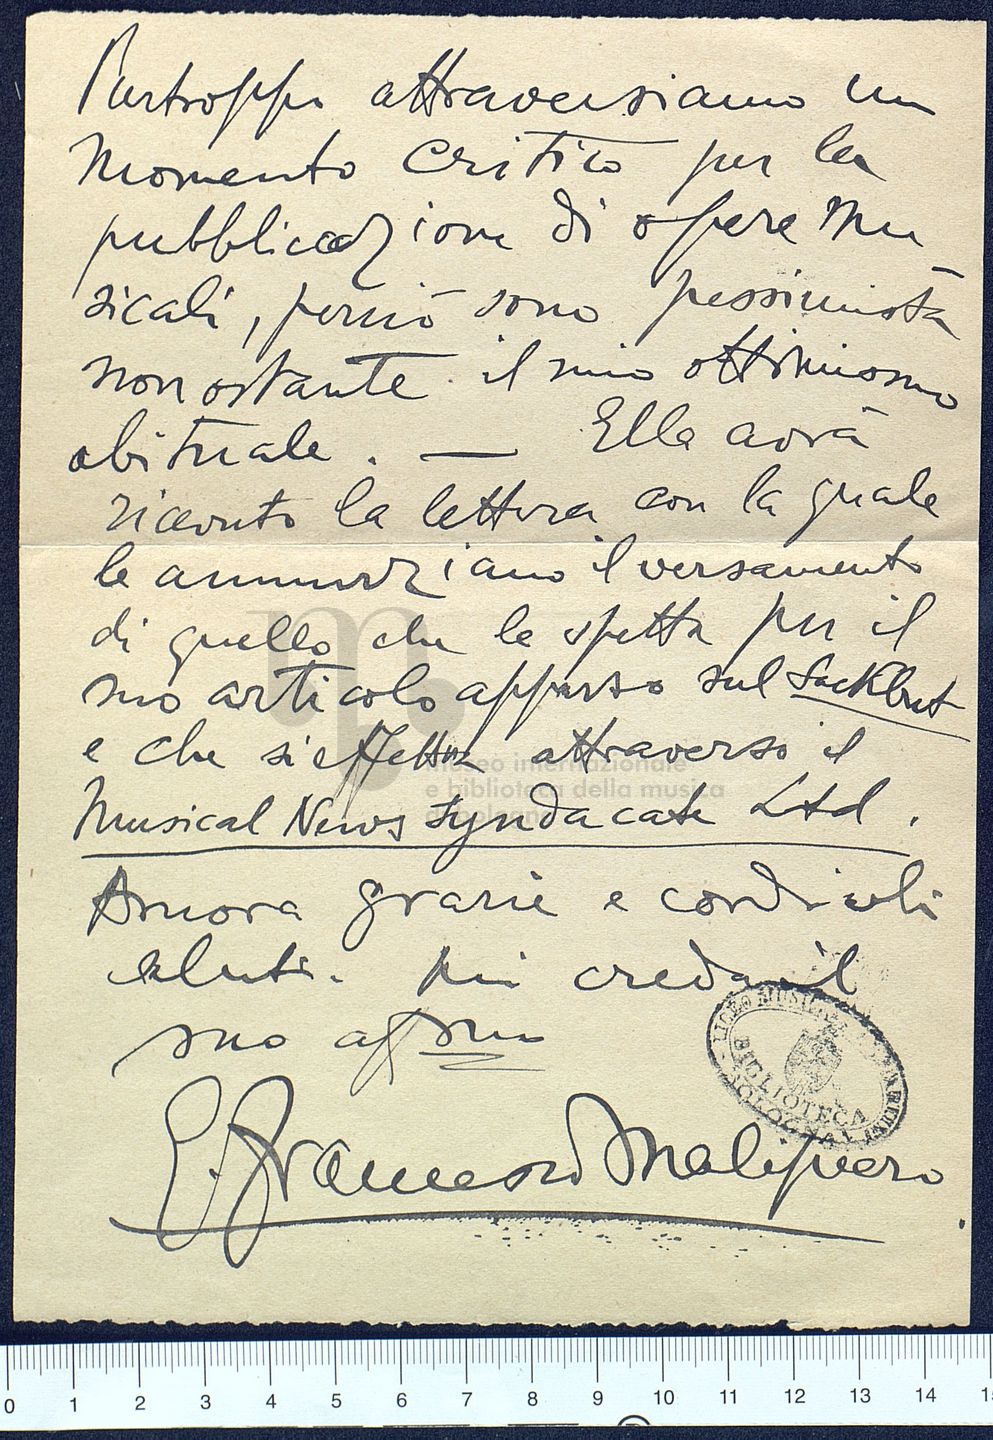 Purtroppo attraversiamo un
momento critico per la
pubblicazione di opere mu
sicali, perciò sono pessimista
non ostante il mio ottimismo
abituale. — Ella avrà
ricevuto la lettera con la quale
le annunziano il versamento
di quello che le spetta per il
suo articolo apparso sul Sackbut
e che si effettua attraverso il
Musical News Syndacate Ltd.
Ancora grazie e cordiali
saluti. Mi creda il
suo affmo
G. Francesco Malipiero
LICEO MUSICALE
BIBLIOTECA
BOLOGNA
museo internazionale
e biblioteca della musica
di bologna
0 1 2 3 4 5 6 7 8 9 10 11 12 13 14 15